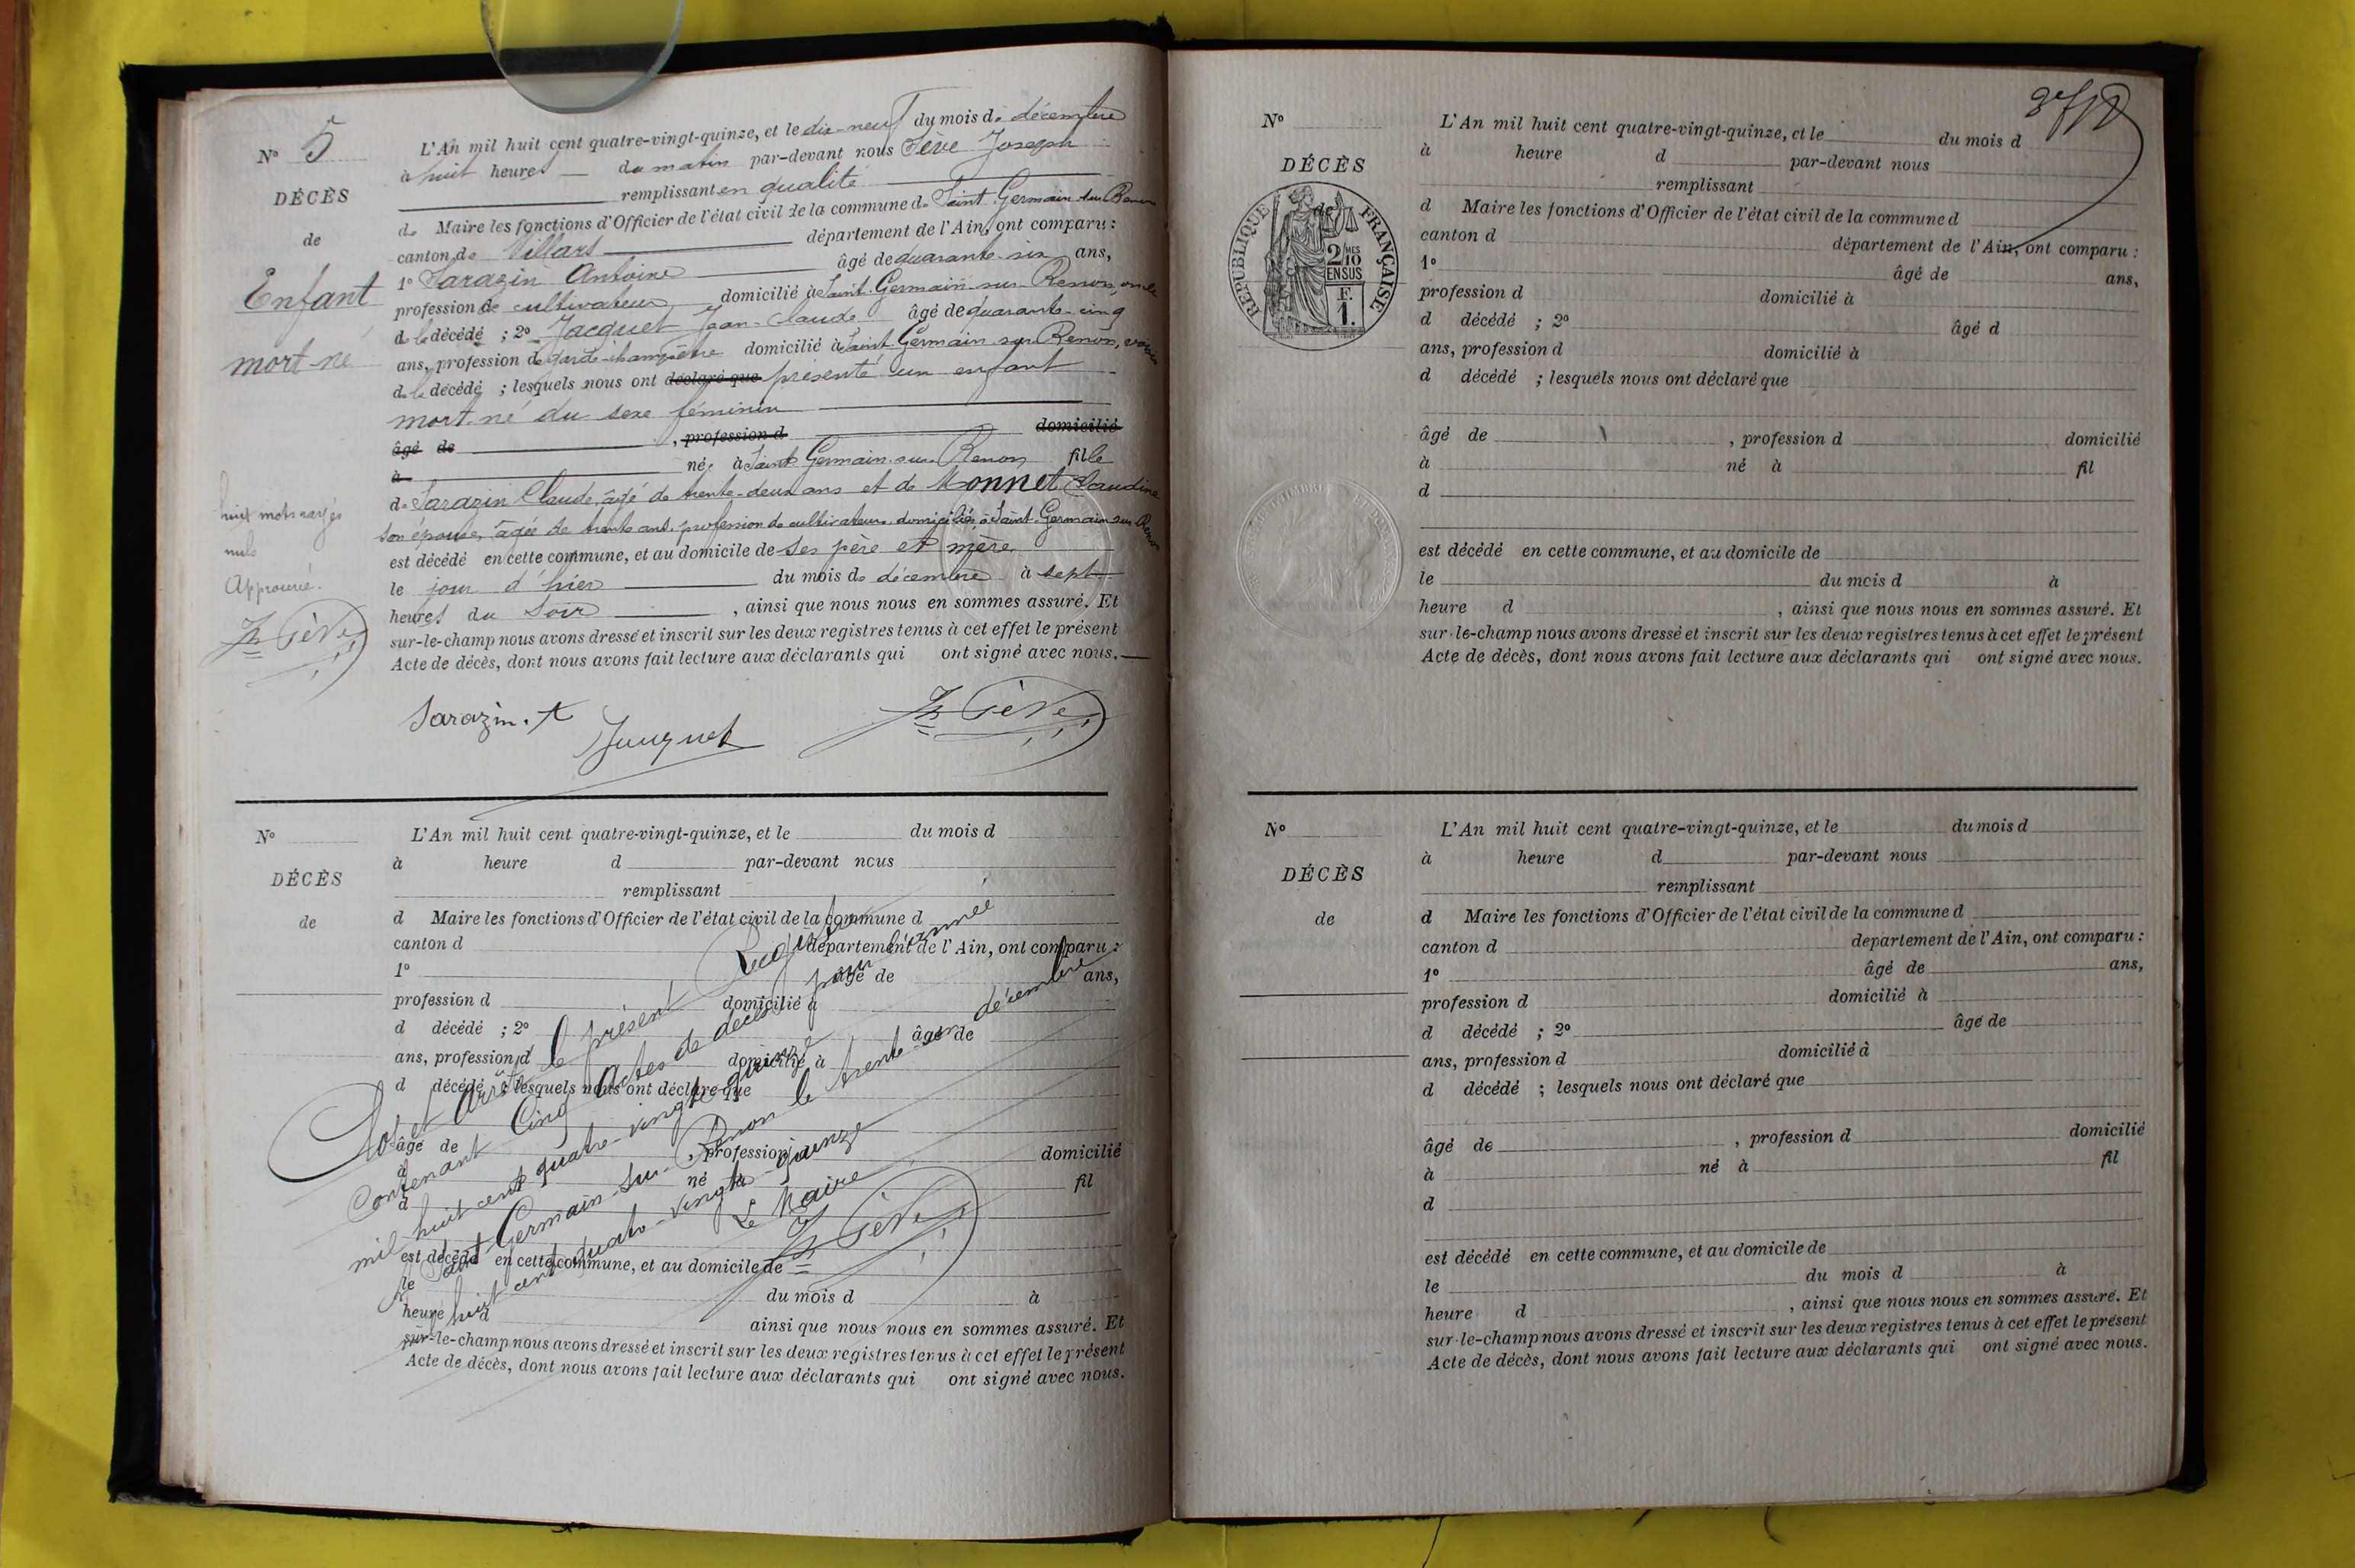 N° 5
DÉCÈS
de
Enfant
mort-né
huit mots rayés
nuls
Approuvé.
Jh Sève
L'An mil huit cent quatre-vingt-quinze, et le dix-neuf du mois de décembre
à huit heures du matin par-devant nous Sève Joseph
remplissant en qualité
de Maire les fonctions d'Officier de l'état civil de la commune de Saint Germain sur Renon
canton de Villars département de l'Ain, ont comparu :
1° Sarazin Antoine âgé de quarante-six ans,
profession de cultivateur domicilié à Saint-Germain-sur-Renon, oncle
de le décédé ; 2° Jacquet Jean-Claude âgé de quarante-cinq
ans, profession de garde-champêtre domicilié à Saint Germain sur Renon, voisin
de le décédé ; lesquels nous ont déclaré que présenté un enfant
mort-né du sexe féminin
âgé de , profession d domicilié
à né à Saint Germain-sur-Renon fille
de Sarazin Claude, âgé de trente-deux ans et de Monnet Claudine
son épouse, âgée de trente ans, profession de cultivateurs domiciliés à Saint-Germain sur Renon
est décédé en cette commune, et au domicile de ses père et mère
le jour d'hier du mois de décembre à sept
heures du soir , ainsi que nous nous en sommes assuré. Et
sur-le-champ nous avons dressé et inscrit sur les deux registres tenus à cet effet le présent
Acte de décès, dont nous avons fait lecture aux déclarants qui ont signé avec nous.
Sarazin. A Jacquet Jh Sève
N°
DÉCÈS
de
L'An mil huit cent quatre-vingt-quinze, et le du mois d
à heure d par-devant nous
remplissant
d Maire les fonctions d'Officier de l'état civil de la commune d
canton d département de l'Ain, ont comparu :
1° âgé de ans,
profession d domicilié à
d décédé ; 2° âgé de
ans, profession d domicilié à
d décédé ; lesquels nous ont déclaré que
âgé de , profession domicilié
à né à fil
d
est décédé en cette commune, et au domicile de
le du mois d à
heure d ainsi que nous nous en sommes assuré. Et
sur-le-champ nous avons dressé et inscrit sur les deux registres tenus à cet effet le présent
Acte de décès, dont nous avons fait lecture aux déclarants qui ont signé avec nous.
Clos et Arrêté le présent Registre
Contenant Cinq Actes de décès pour l'année
mil-huit cent quatre-vingt-quinze
à Saint Germain-sur-Renon le trente-un décembre
mil huit cent quatre-vingt-quinze
Le Maire
Jh Sève
N°
DÉCÈS
de
RÉPUBLIQUE FRANÇAISE
2/10
MES
EN SUS
F.
1.
L'An mil huit cent quatre-vingt-quinze, et le du mois d
à heure d par-devant nous
remplissant
d Maire les fonctions d'Officier de l'état civil de la commune d
canton d département de l'Ain, ont comparu :
1° âgé de ans,
profession d domicilié à
d décédé ; 2° âgé d
ans, profession d domicilié à
d décédé ; lesquels nous ont déclaré que
âgé de , profession d domicilié
à né à fil
d
est décédé en cette commune, et au domicile de
le du mois d à
heure d , ainsi que nous nous en sommes assuré. Et
sur-le-champ nous avons dressé et inscrit sur les deux registres tenus à cet effet le présent
Acte de décès, dont nous avons fait lecture aux déclarants qui ont signé avec nous.
N°
DÉCÈS
de
L'An mil huit cent quatre-vingt-quinze, et le du mois d
à heure d par-devant nous
remplissant
d Maire les fonctions d'Officier de l'état civil de la commune d
canton d département de l'Ain, ont comparu :
1° âgé de ans,
profession d domicilié à
d décédé ; 2° âgé de
ans, profession d domicilié à
d décédé ; lesquels nous ont déclaré que
âgé de , profession d domicilié
à né à fil
d
est décédé en cette commune, et au domicile de
le du mois d à
heure d , ainsi que nous nous en sommes assuré. Et
sur-le-champ nous avons dressé et inscrit sur les deux registres tenus à cet effet le présent
Acte de décès, dont nous avons fait lecture aux déclarants qui ont signé avec nous.